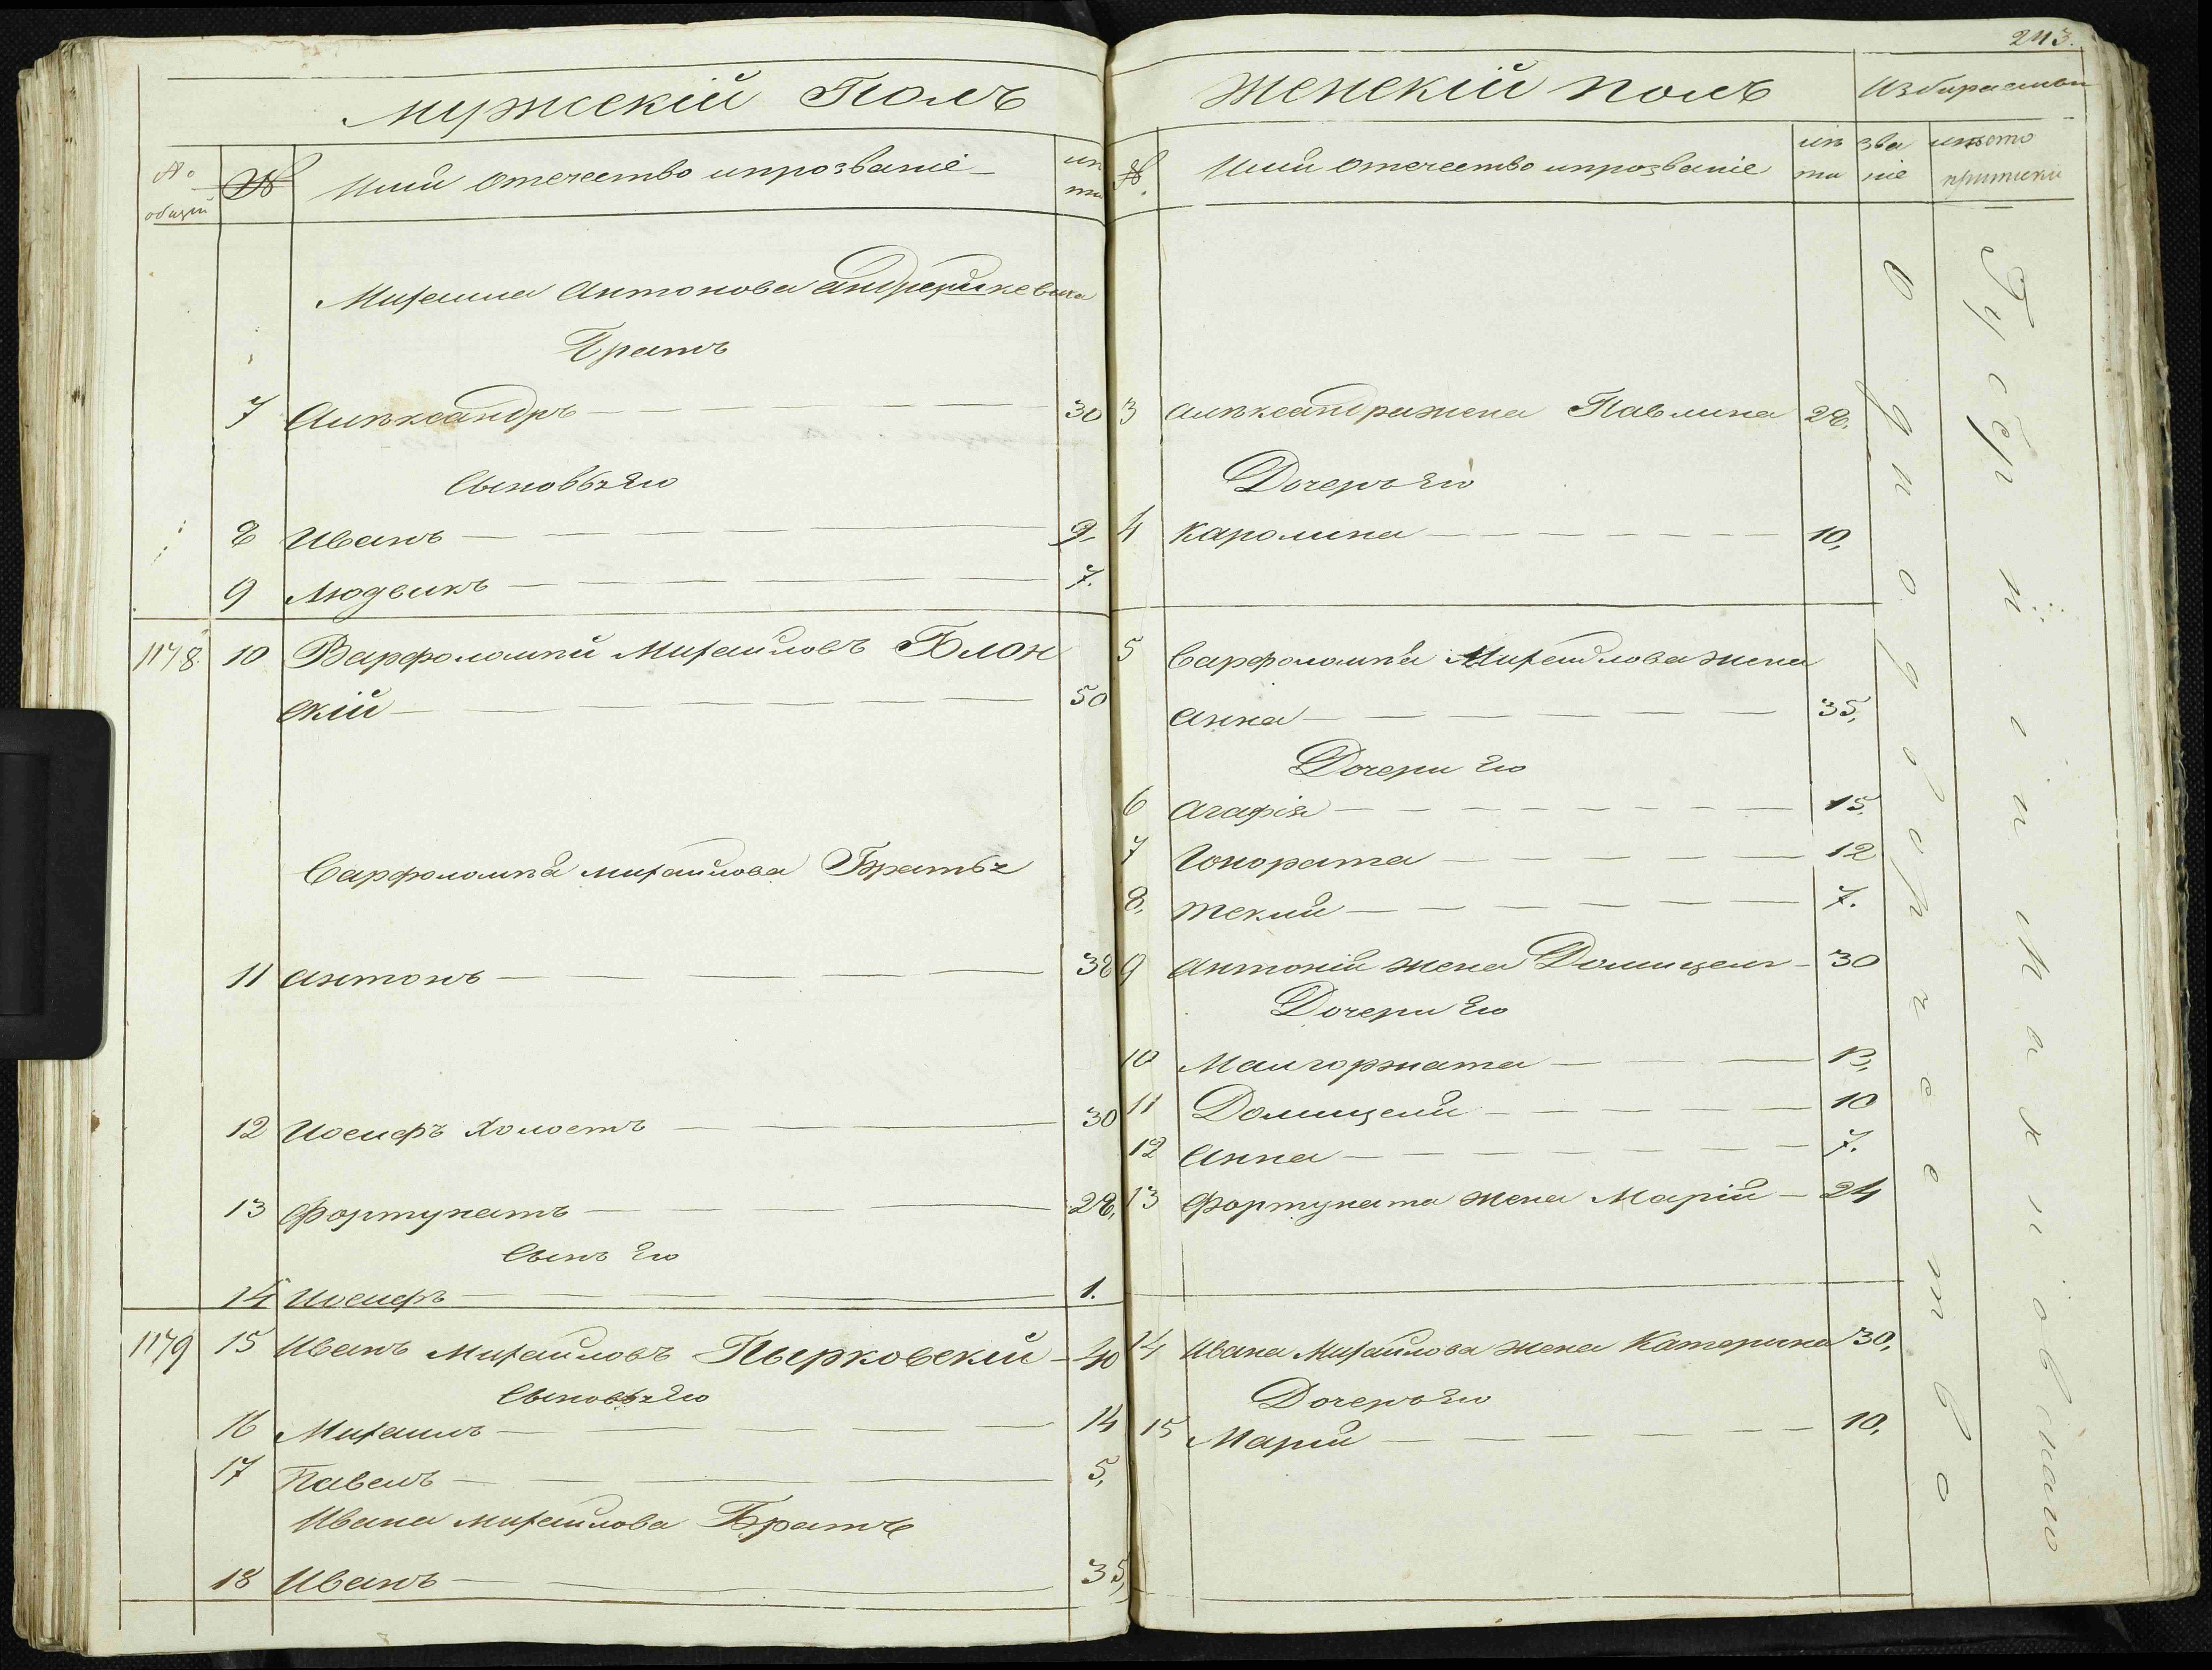 243.
Мужескій Полъ
№ общій
№
Имя отечество и прозваніе
лѣта
Михаила Антонова Андрейкевича
Братъ
7 Александръ 30
Сыновья Его
8 Иванъ 9.
9 Людвикъ 7.
1178. 10 Варфоломѣй Михайловъ Блон
скій 50
Варфоломѣя Михайлова Братья
11 Антонъ 38
12 Иосифъ холостъ 30
13 Фортунатъ 28,
Сынъ Его
14 Иосифъ 1.
1179 15 Иванъ Михайловъ Пырковскій 40
Сыновья Его
16 Михаилъ 14
17 Павелъ 5,
Ивана Михайлова Братъ
18 Иванъ 35,
Женскій полъ
Избираемыя
№.
Имя отечество и прозваніе
лѣта
званіе
мѣсто приписки
3 Александра жена Павлина 28.
Дочерь Его
4 Каролина 10,
5 Варфоломѣя Михайлова жена
Анна 35,
Дочери Его
6 Агафія 15.
7 Гонората 12
8. Текля 7.
9 Антонія жена Домицеля 30
Дочери Его
10 Малгоржата 13,
11 Домицеля 10
12 Анна 7.
13 Фортуната жена Марія 24
14 Ивана Михайлова жена Катерина 30,
Дочерь Его
15 Марія 10,
Однодворчество